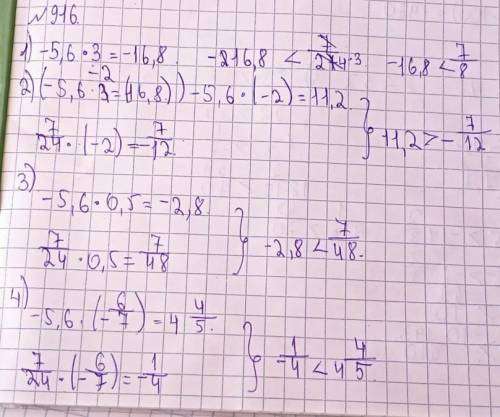 №916.
1) -5,6·3=-16,8. -216,8 < 7/24·3 -16,8 < 7/8
2) (-5,6·3=(16,8)) -5,6·(-2)=11,2.
7/24·(-2)=-7/12. } 11,2 > -7/12
3)
-5,6·0,5=-2,8.
7/24·0,5=7/48 } -2,8 < 7/48.
4)
-5,6·(-6/7)=4 4/5.
7/24·(-6/7)=-1/4 } 1/-4 < 4 4/5.